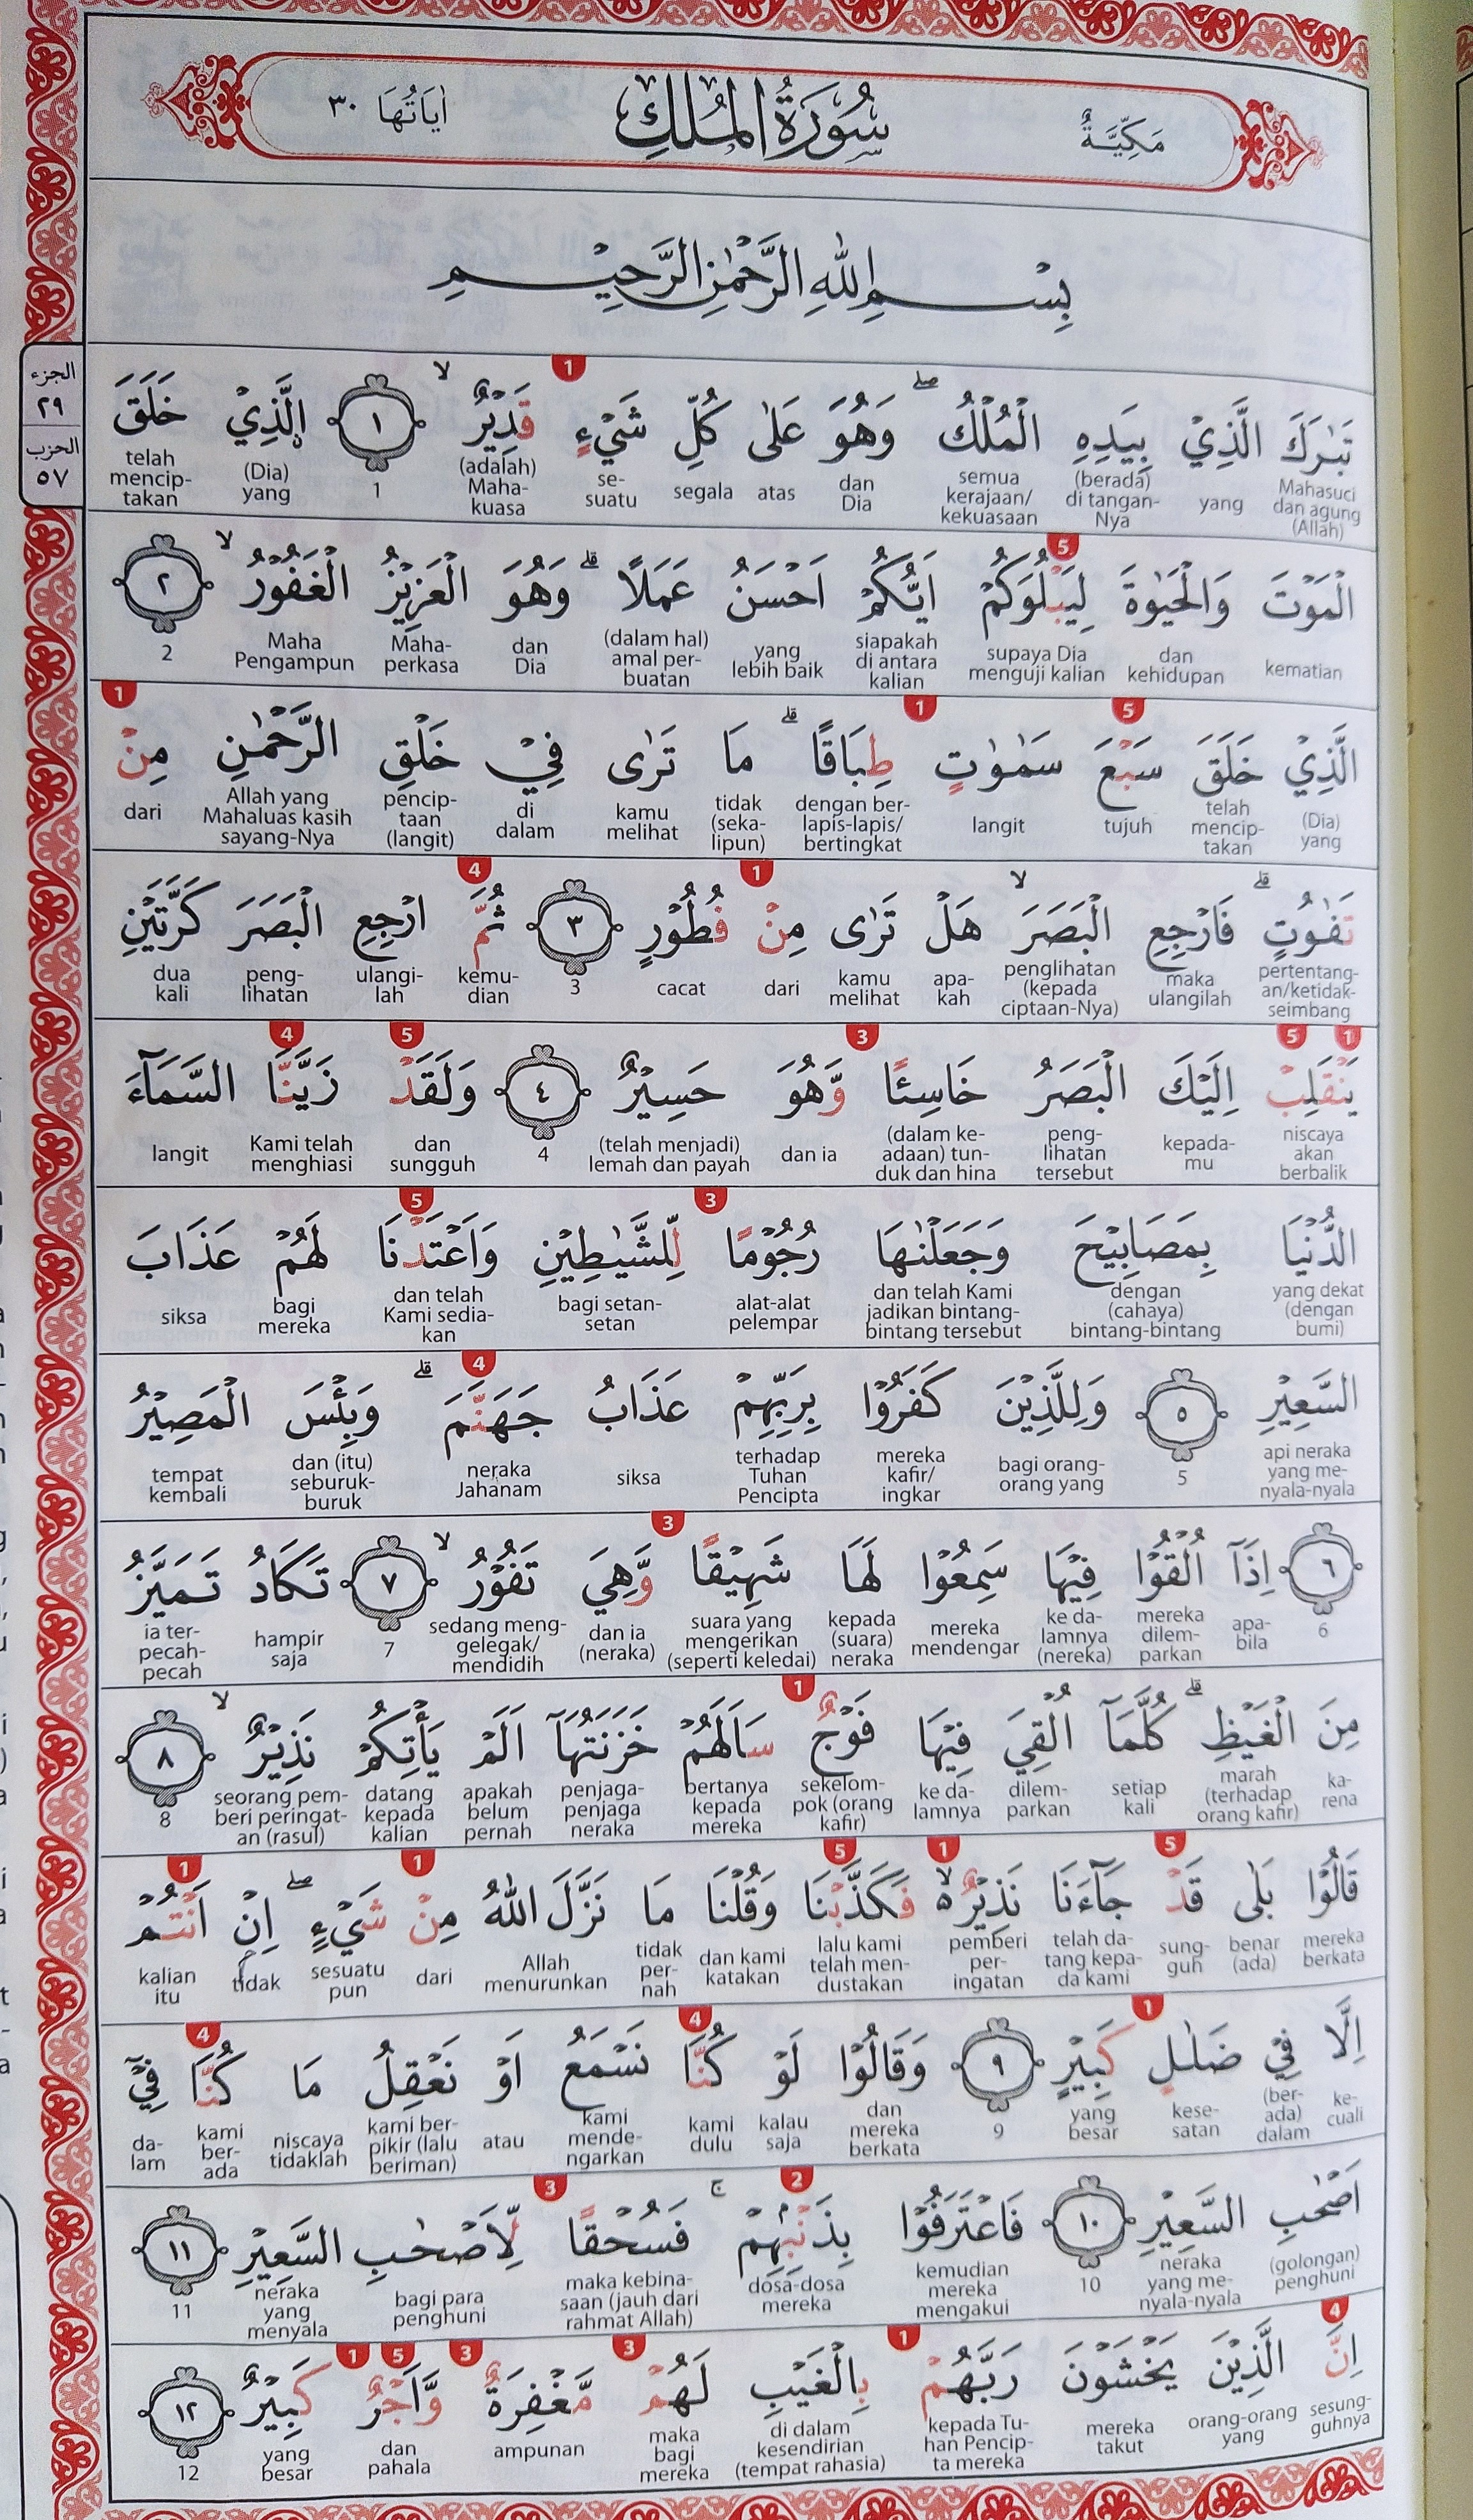 مَكِّيَّةٌ سُوْرَةُ الْمُلْكِ اٰيَاتُهَا ٣٠
بِسْمِ اللّٰهِ الرَّحْمٰنِ الرَّحِيْمِ
الجزء
٢٩
الحزب
٥٧
1
تَبٰرَكَ الَّذِيْ بِيَدِهِ الْمُلْكُۖ وَهُوَ عَلٰى كُلِّ شَيْءٍ قَدِيْرٌۙ ١ اۨلَّذِيْ خَلَقَ
Mahasuci dan agung (Allah) yang (berada) di tangan-Nya semua kerajaan/kekuasaan dan Dia atas segala se-suatu (adalah) Maha-kuasa 1 (Dia) yang telah mencip-takan
5
الْمَوْتَ وَالْحَيٰوةَ لِيَبْلُوَكُمْ اَيُّكُمْ اَحْسَنُ عَمَلًاۗ وَهُوَ الْعَزِيْزُ الْغَفُوْرُۙ ٢
kematian dan kehidupan supaya Dia menguji kalian siapakah di antara kalian yang lebih baik (dalam hal) amal per-buatan dan Dia Maha-perkasa Maha Pengampun 2
5 1 1
الَّذِيْ خَلَقَ سَبْعَ سَمٰوٰتٍ طِبَاقًاۗ مَا تَرٰى فِيْ خَلْقِ الرَّحْمٰنِ مِنْ
(Dia) yang telah mencip-takan tujuh langit dengan ber-lapis-lapis/bertingkat tidak (seka-lipun) kamu melihat di dalam pencip-taan (langit) Allah yang Mahaluas kasih sayang-Nya dari
1 4
تَفٰوُتٍۗ فَارْجِعِ الْبَصَرَۙ هَلْ تَرٰى مِنْ فُطُوْرٍ ٣ ثُمَّ ارْجِعِ الْبَصَرَ كَرَّتَيْنِ
pertentang-an/ketidak-seimbang maka ulangilah penglihatan (kepada ciptaan-Nya) apa-kah kamu melihat dari cacat 3 kemu-dian ulangi-lah peng-lihatan dua kali
1 5 3 5 4
يَنْقَلِبْ اِلَيْكَ الْبَصَرُ خَاسِئًا وَّهُوَ حَسِيْرٌ ٤ وَلَقَدْ زَيَّنَّا السَّمَآءَ
niscaya akan berbalik kepada-mu peng-lihatan tersebut (dalam ke-adaan) tun-duk dan hina dan ia (telah menjadi) lemah dan payah 4 dan sungguh Kami telah menghiasi langit
3 5
الدُّنْيَا بِمَصَابِيْحَ وَجَعَلْنٰهَا رُجُوْمًا لِّلشَّيٰطِيْنِ وَاَعْتَدْنَا لَهُمْ عَذَابَ
yang dekat (dengan bumi) dengan (cahaya) bintang-bintang dan telah Kami jadikan bintang-bintang tersebut alat-alat pelempar bagi setan-setan dan telah Kami sedia-kan bagi mereka siksa
4
السَّعِيْرِ ٥ وَلِلَّذِيْنَ كَفَرُوْا بِرَبِّهِمْ عَذَابُ جَهَنَّمَۗ وَبِئْسَ الْمَصِيْرُ
api neraka yang me-nyala-nyala 5 bagi orang-orang yang mereka kafir/ingkar terhadap Tuhan Pencipta siksa neraka Jahanam dan (itu) seburuk-buruk tempat kembali
3
٦ اِذَآ اُلْقُوْا فِيْهَا سَمِعُوْا لَهَا شَهِيْقًا وَّهِيَ تَفُوْرُۙ ٧ تَكَادُ تَمَيَّزُ
6 apa-bila mereka dilem-parkan ke da-lamnya (nereka) mereka mendengar kepada (suara) neraka suara yang mengerikan (seperti keledai) dan ia (neraka) sedang meng-gelegak/mendidih 7 hampir saja ia ter-pecah-pecah
1
مِنَ الْغَيْظِۗ كُلَّمَآ اُلْقِيَ فِيْهَا فَوْجٌ سَاَلَهُمْ خَزَنَتُهَآ اَلَمْ يَأْتِكُمْ نَذِيْرٌۙ ٨
ka-rena marah (terhadap orang kafir) setiap kali dilem-parkan ke da-lamnya sekelom-pok (orang kafir) bertanya kepada mereka penjaga-penjaga neraka apakah belum pernah datang kepada kalian seorang pem-beri peringat-an (rasul) 8
5 1 5 1 1
قَالُوْا بَلٰى قَدْ جَآءَنَا نَذِيْرٌ ەۙ فَكَذَّبْنَا وَقُلْنَا مَا نَزَّلَ اللّٰهُ مِنْ شَيْءٍۖ اِنْ اَنْتُمْ
mereka berkata benar (ada) sung-guh telah da-tang kepa-da kami pemberi per-ingatan lalu kami telah men-dustakan dan kami katakan tidak per-nah Allah menurunkan dari sesuatu pun tidak kalian itu
1 4 4
اِلَّا فِيْ ضَلٰلٍ كَبِيْرٍ ٩ وَقَالُوْا لَوْ كُنَّا نَسْمَعُ اَوْ نَعْقِلُ مَا كُنَّا فِيْٓ
ke-cuali (ber-ada) dalam kese-satan yang besar 9 dan mereka berkata kalau saja kami dulu kami mende-ngarkan atau kami ber-pikir (lalu beriman) niscaya tidaklah kami ber-ada da-lam
2 3
اَصْحٰبِ السَّعِيْرِ ١٠ فَاعْتَرَفُوْا بِذَنْۢبِهِمْۚ فَسُحْقًا لِّاَصْحٰبِ السَّعِيْرِ ١١
(golongan) penghuni neraka yang me-nyala-nyala 10 kemudian mereka mengakui dosa-dosa mereka maka kebina-saan (jauh dari rahmat Allah) bagi para penghuni neraka yang menyala 11
4 1 3 3 5 1
اِنَّ الَّذِيْنَ يَخْشَوْنَ رَبَّهُمْ بِالْغَيْبِ لَهُمْ مَّغْفِرَةٌ وَّاَجْرٌ كَبِيْرٌ ١٢
sesung-guhnya orang-orang yang mereka takut kepada Tu-han Pencip-ta mereka di dalam kesendirian (tempat rahasia) maka bagi mereka ampunan dan pahala yang besar 12